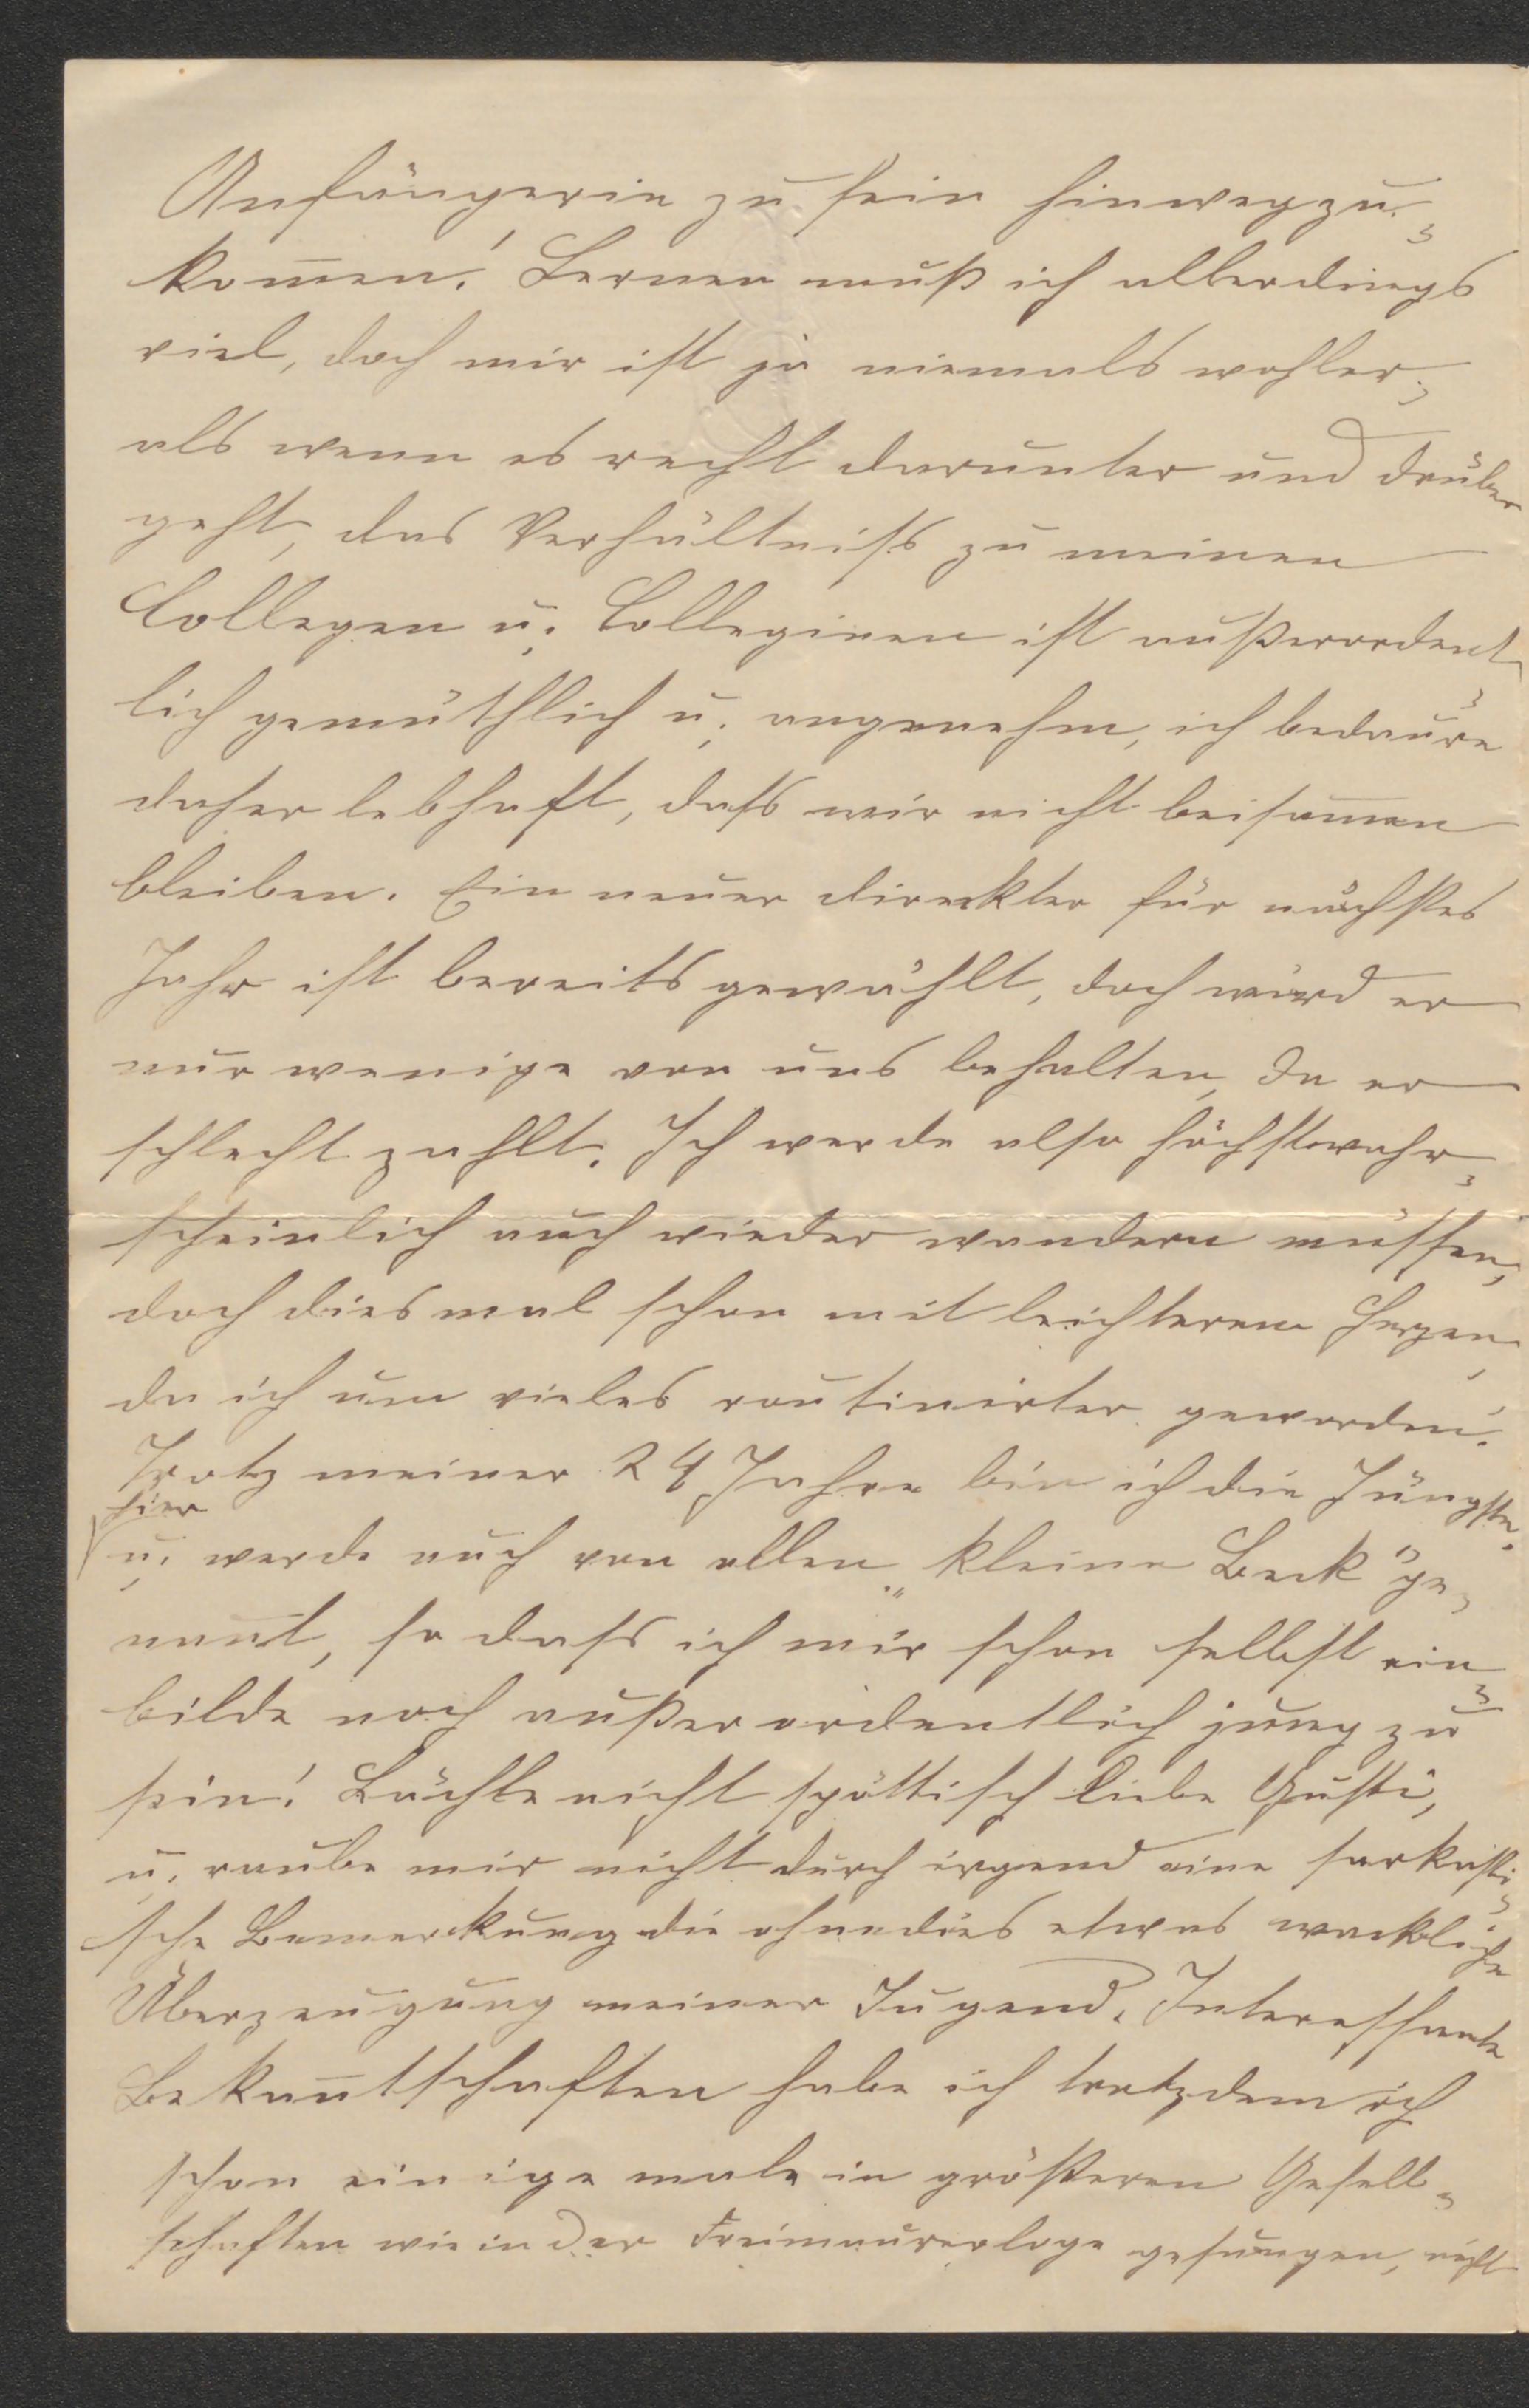 Anfängerin zu sein hinwegzu-
kom̅en! Lernen muß ich allerdings
viel, doch mir ist ja niemals wohler,
als wenn es recht darunter und drüber
geht, das Verhältniss zu meinen
Collegen u. Colleginen ist außerordent-
lich gemüthlich u. angenehm, ich bedaure
daher lebhaft, dass wir nicht beisam̅en
bleiben. Ein neuer Direktor für nächstes
Jahr ist bereits gewählt, doch wird er
nur wenige von uns behalten, da er
schlecht zahlt. Ich werde also höchstwahr-
scheinlich auch wieder wandern müssen,
doch diesmal schon mit leichterem Herzen,
da ich um vieles routinirter geworden!
Trotz meiner 24 Jahre bin ich die Jüngste
hier
u. werde auch von allen „kleine Beck“ ge-
nan̅t, so dass ich mir schon selbst ein-
bilde noch außerordentlich jung zu
sein! Lächle nicht spöttisch liebe Gusti,
u. raube mir nicht durch irgend eine sarkasti-
sche Bemerkung die ohnedies etwas wackliche
Überzeugung meiner Jugend. Interessante
Bekan̅tschaften habe ich trotzdem ich
schon einige male in größeren Gesell-
schaften wie in der Freimaurerloge gesungen, nicht